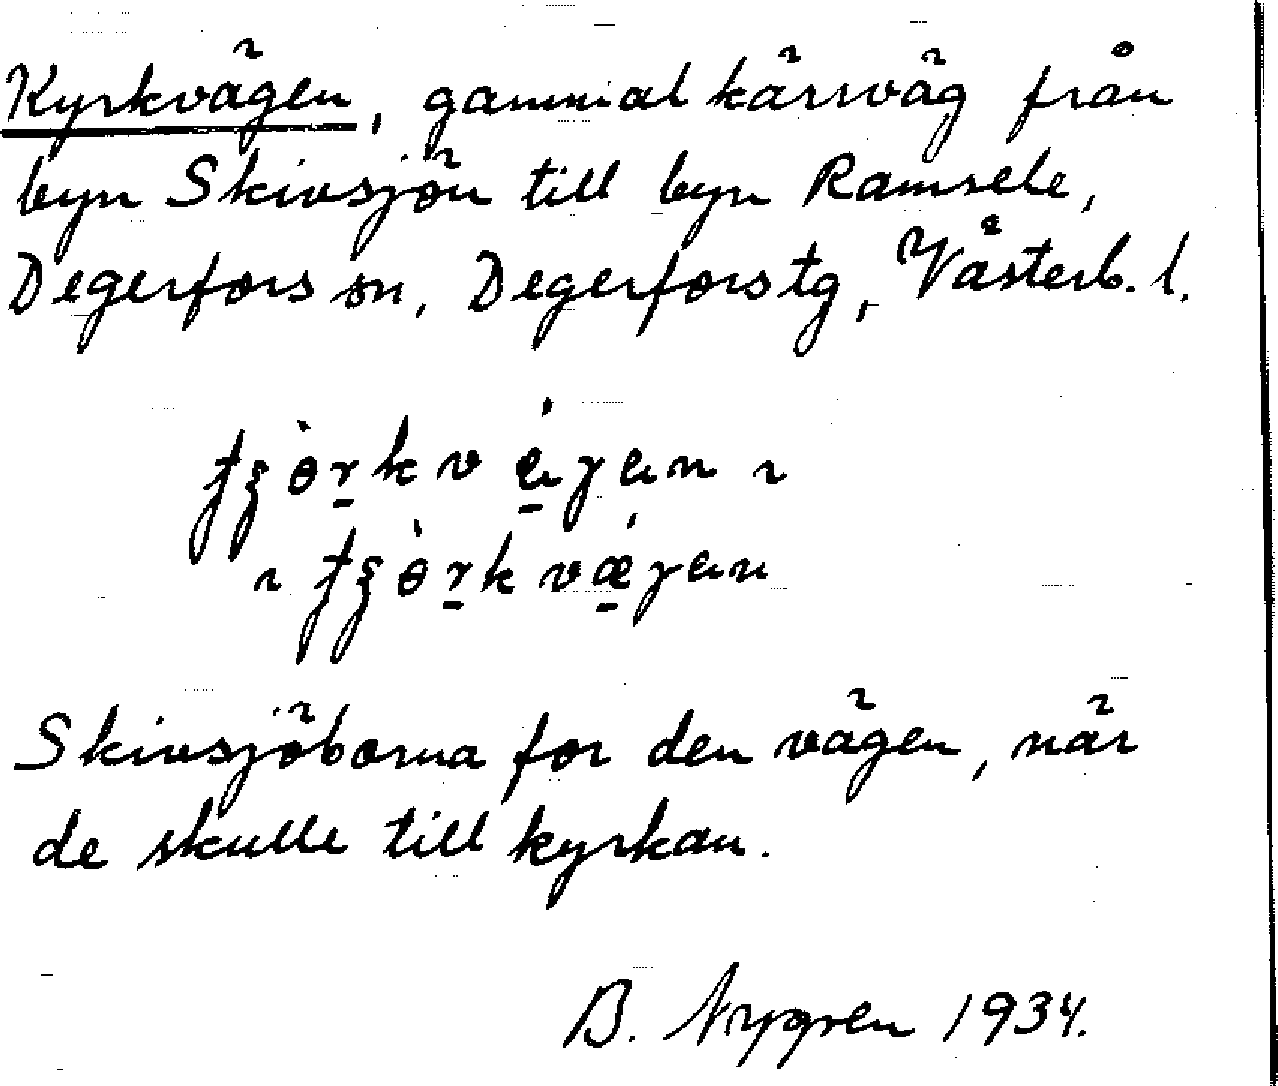 Kyrkvägen, gammal kärrväg från
byn Skivsjön till byn Ramsele,
Degerfors sn, Degerfors tg, Västerb. l.
Skivsjöborna for den vägen, när
de skulle till kyrkan.
B. Nygren 1934.